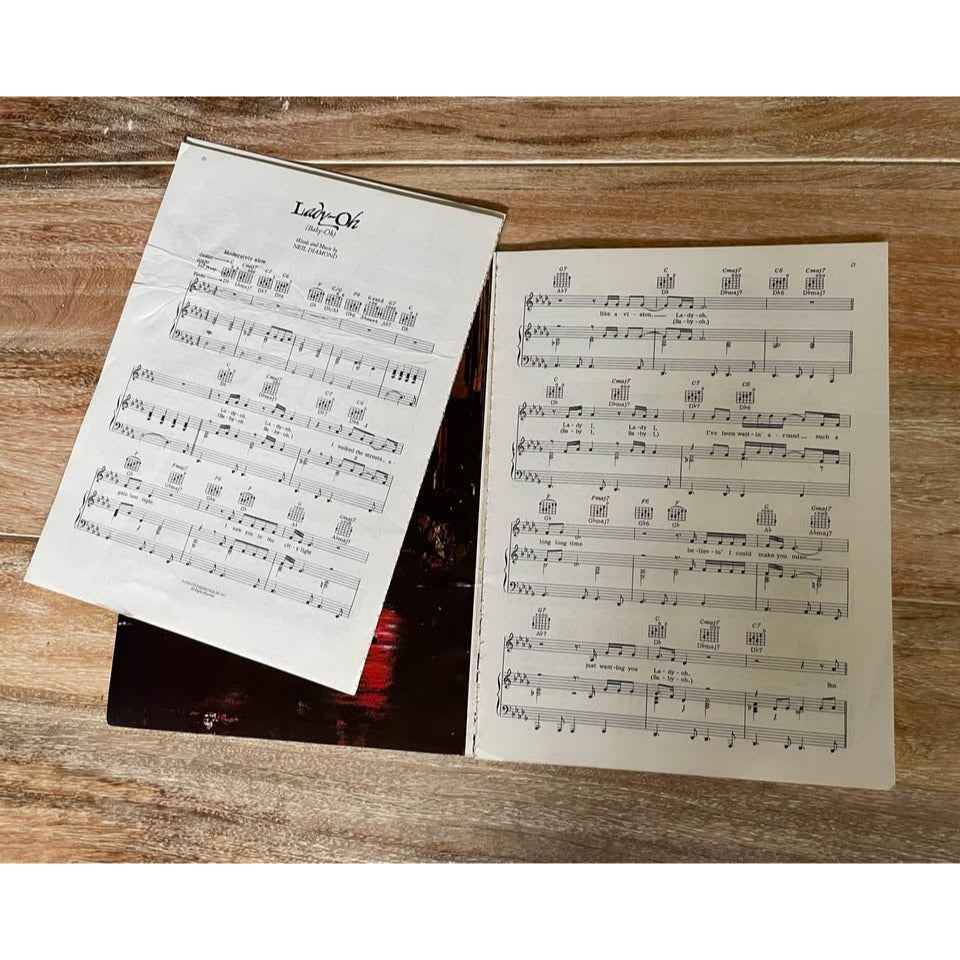 Lady-Oh
(Baby-Oh)
Words and Music by
NEIL DIAMOND
Moderately slow
C Cmaj7 C7 C6
F C/G F6 G7 C
C Cmaj7 C7 C6
Db Dbmaj7 Db7 Db6
La-dy-oh, La-dy-oh,
(Ba-by-oh, Ba-by-oh,)
I walked the streets, a
F Fmaj7 F6 F G Gmaj7
Gb Gbmaj7 Gb6 Gb Ab Abmaj7
gain last night.
I saw you in the cit-y light
All Rights Reserved
G7 C Cmaj7 C6 Cmaj7
Ab7 Db Dbmaj7 Db6 Dbmaj7
like a vi-sion, La-dy-oh.
(Ba-by-oh.)
C Cmaj7 C7 C6
Db Dbmaj7 Db7 Db6
La-dy I, La-dy I,
(Ba-by I, Ba-by I,)
I've been wait-in' a-round such a
F Fmaj7 F6 F G Gmaj7
Gb Gbmaj7 Gb6 Gb Ab Abmaj7
long long time
be-liev-in' I could make you mine
G7 C Cmaj7 C7
Ab7 Db Dbmaj7 Db7
just want-ing you La-dy-oh.
(Ba-by-oh.)
But